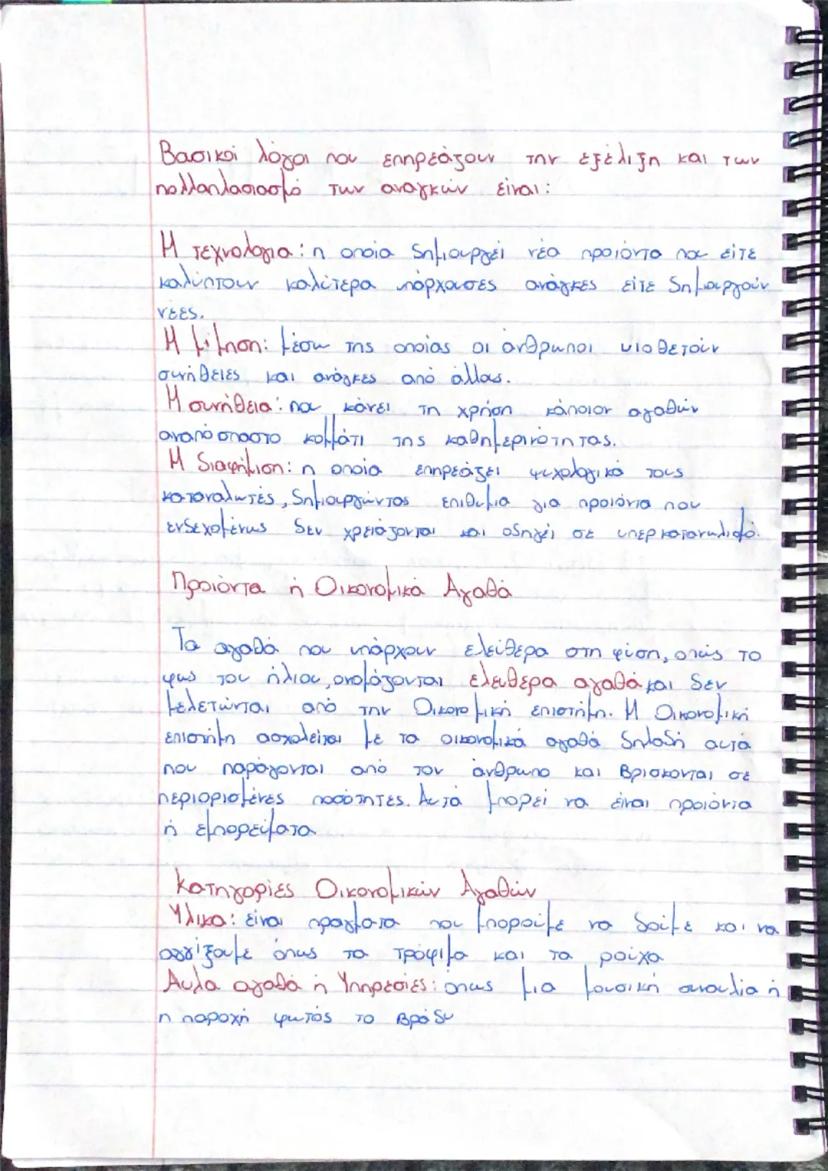 Βασικοί λόγοι που επηρεάζουν την εξέλιξη και των
πολλαπλασιασμό των αναγκών είναι:
Η τεχνολογία: η οποία δημιουργεί νέα προιόντα που είτε
καλύπτουν καλίτερα υπάρχουσες ανάγκες είτε δημιουργούν
νέες.
Η μίμηση: μέσω της οποίας οι άνθρωποι υιοθετούν
συνήθειες και ανάγκες από άλλους.
Η συνήθεια: που κάνει τη χρήση κάποιον αγαθών
αναπόσπαστο κομμάτι της καθημερινότητας.
Η διαφήμιση: η οποία επηρεάζει ψυχολογικά τους
καταναλωτές, δημιουργώντας επιθυμία για προιόντα που
ενδεχομένως δεν χρειάζονται και οδηγεί σε υπερκαταναλισμό.
Προιόντα ή Οικονομικά Αγαθά
Τα αγαθά που υπάρχουν ελείθερα στη φύση, οπώς το
φως του ήλιου, ονομάζονται ελευθερα αγαθά και δεν
μελετώνται από την Οικονομική επιστήμη. Η Οικονομική
επιστήμη ασχολείται με τα οικονομικά αγαθά δηλαδή αυτά
που παράγονται από τον άνθρωπο και βρισκονται σε
περιορισμένες ποσότητες. Αυτά μπορεί να είναι προιόντα
ή εμπορείματα
Κατηγορίες Οικονομικών Αγαθών
Υλικα: είναι πραγματα που μπορούμε να δούμε και να
αγγίξουμε όπως τα τρόφιμα και τα ρούχα
Αυλα αγαθά ή Υπηρεσίες: όπως μια μουσική συναυλία ή
η παροχή φωτός το βράδυ